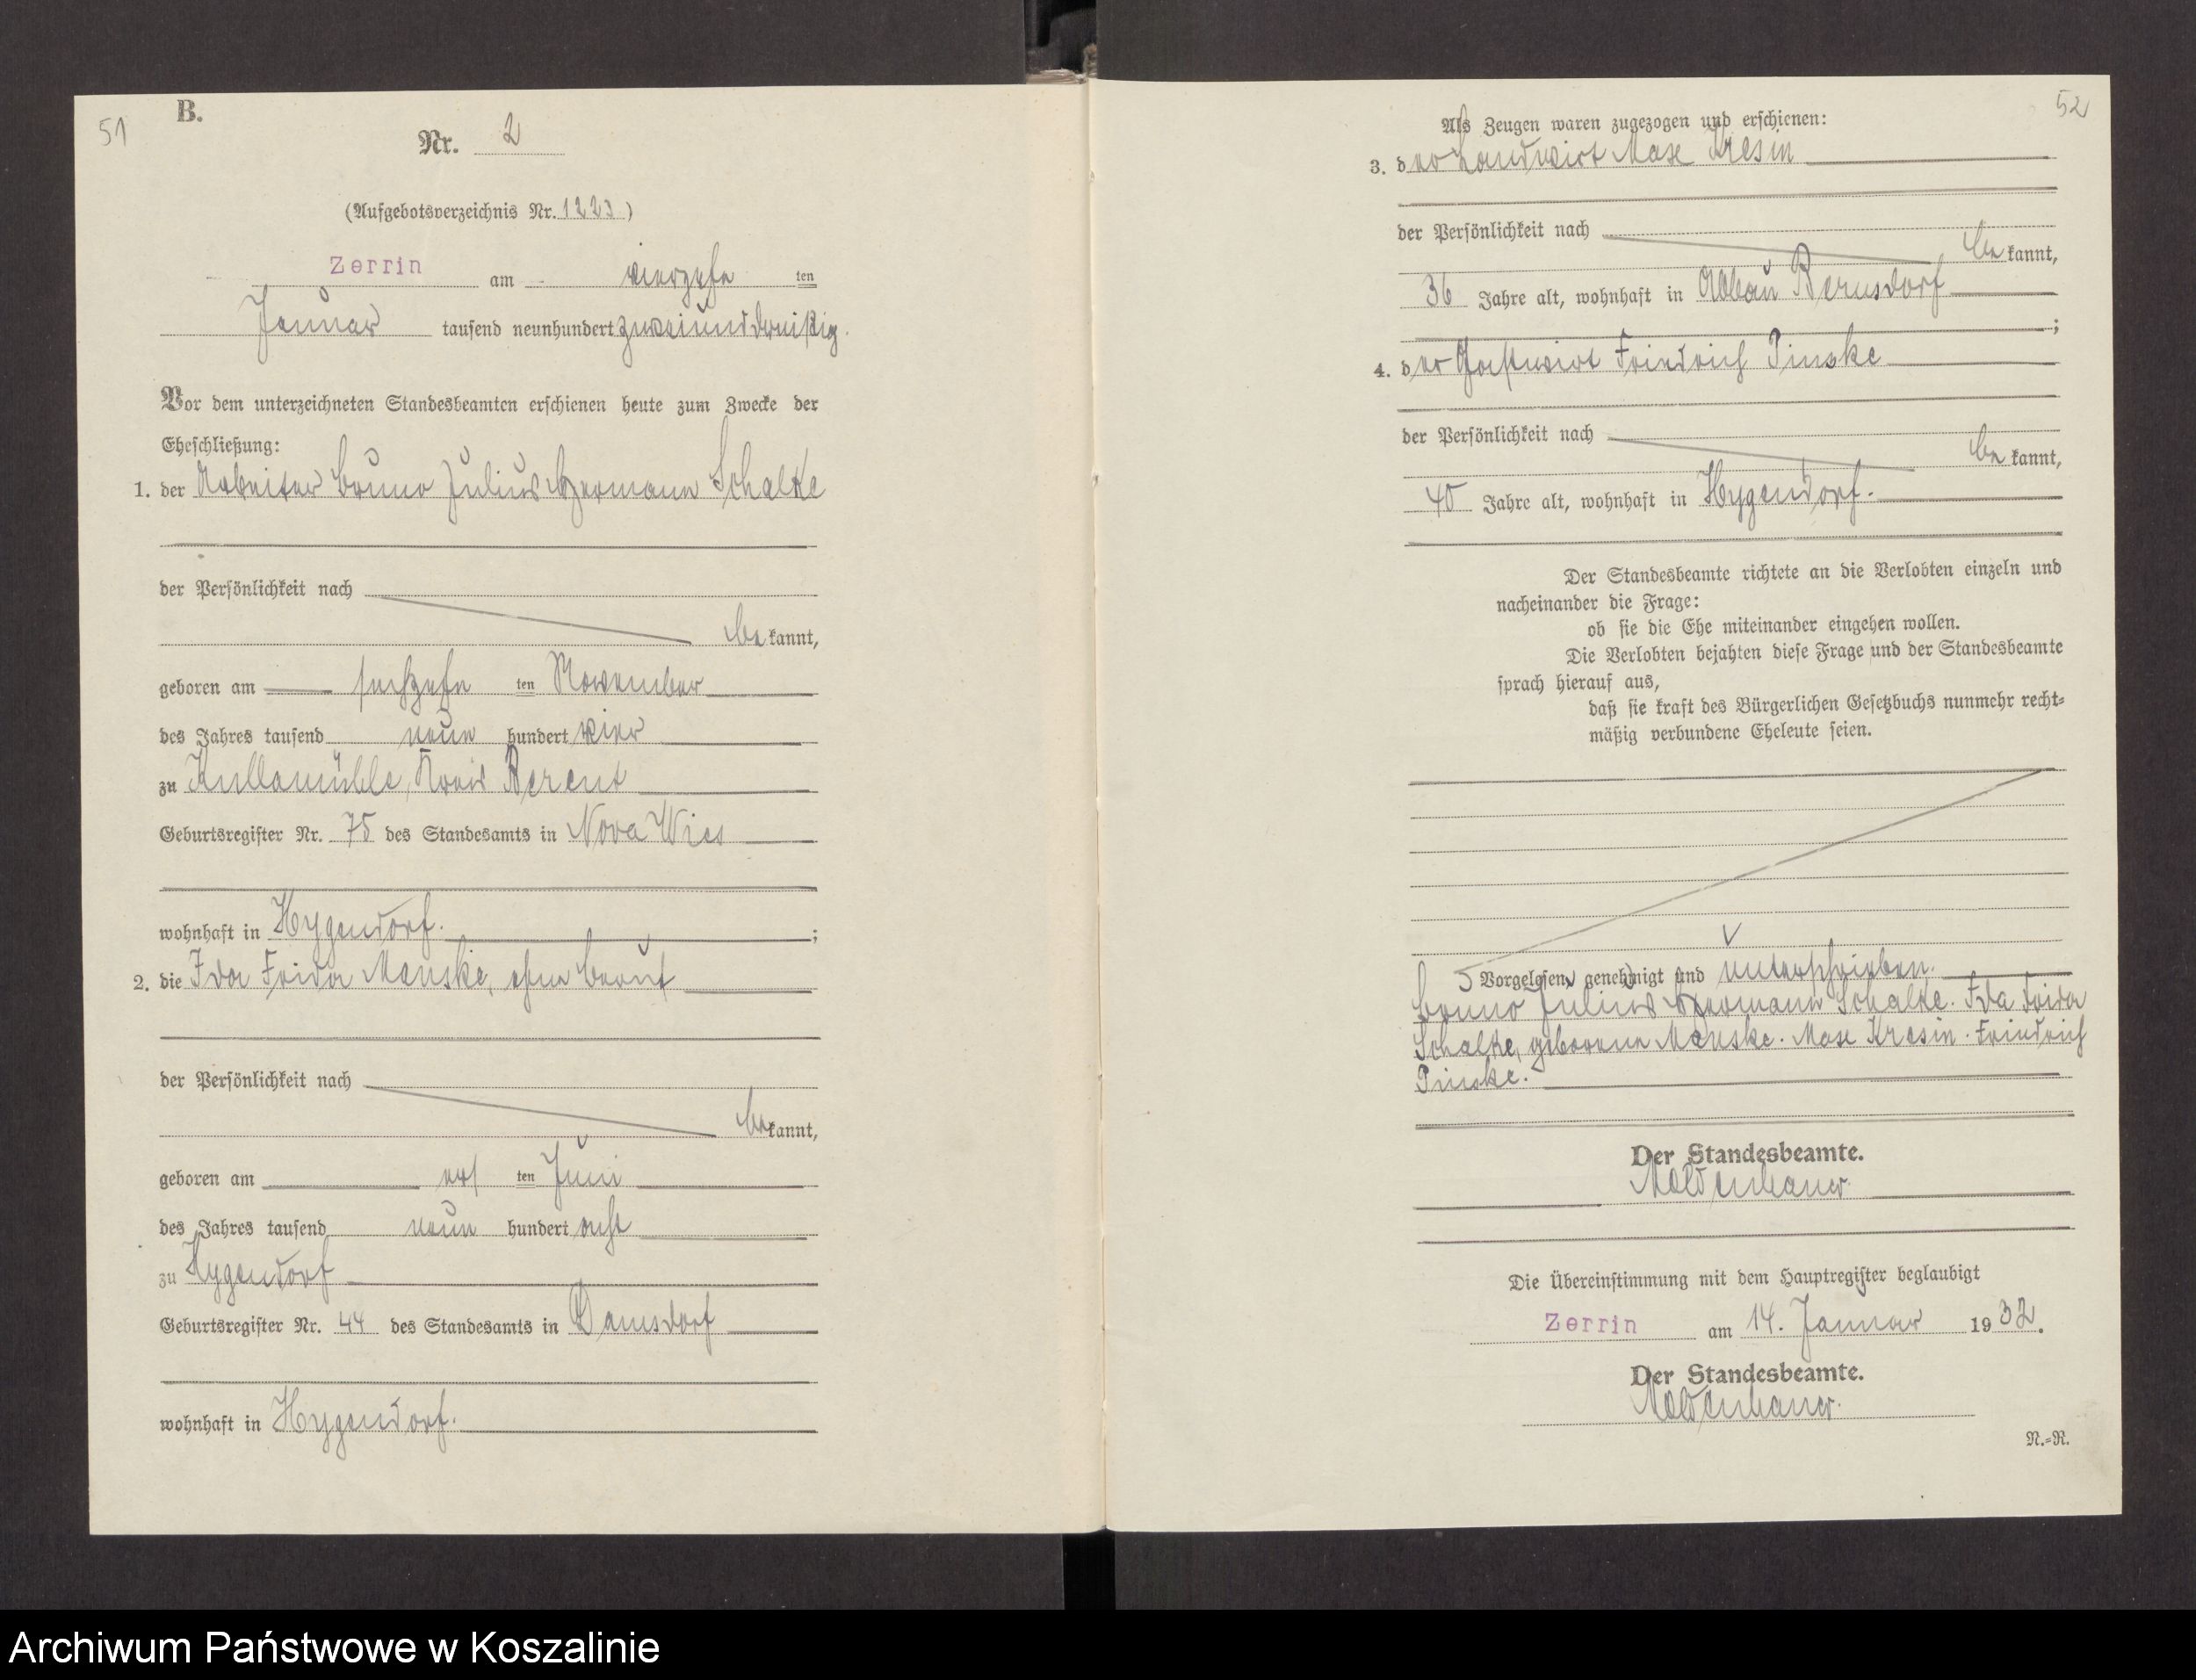 51
B.
Nr. 2
(Aufgebotsverzeichnis Nr. 1223)
Zerrin am vierzehn ten
Januar tausend neunhundert zweiunddreißig.
Vor dem unterzeichneten Standesbeamten erschienen heute zum Zwecke der
Eheschließung:
1. der Arbeiter Bruno Julius Hermann Schalke
der Persönlichkeit nach
be kannt,
geboren am sechzehn ten November
des Jahres tausend neun hundert vier
zu Kullamühle, Kreis Berent
Geburtsregister Nr. 75 des Standesamts in Nova Wies
wohnhaft in Hygendorf. ;
2. die Ida Frida Manske, ohne Beruf
der Persönlichkeit nach
be kannt,
geboren am ers ten Juni
des Jahres tausend neun hundert acht
zu Hygendorf
Geburtsregister Nr. 44 des Standesamts in Damsdorf
wohnhaft in Hygendorf.
52
Als Zeugen waren zugezogen und erschienen:
3. der Landwirt Max Kresin
der Persönlichkeit nach
be kannt,
36 Jahre alt, wohnhaft in Abbau Bernsdorf
;
4. der Gastwirt Friedrich Pinske
der Persönlichkeit nach
be kannt,
40 Jahre alt, wohnhaft in Hygendorf.
Der Standesbeamte richtete an die Verlobten einzeln und
nacheinander die Frage:
ob sie die Ehe miteinander eingehen wollen.
Die Verlobten bejahten diese Frage und der Standesbeamte
sprach hierauf aus,
daß sie kraft des Bürgerlichen Gesetzbuchs nunmehr recht-
mäßig verbundene Eheleute seien.
Vorgelesen, genehmigt und unterschrieben.
Bruno Julius Hermann Schalke. Ida Frida
Schalke, geborene Manske. Max Kresin. Friedrich
Pinske.
Der Standesbeamte.
Moldenhauer.
Die Übereinstimmung mit dem Hauptregister beglaubigt
Zerrin am 14. Januar 1932.
Der Standesbeamte.
Moldenhauer.
N.-R.
Archiwum Państwowe w Koszalinie